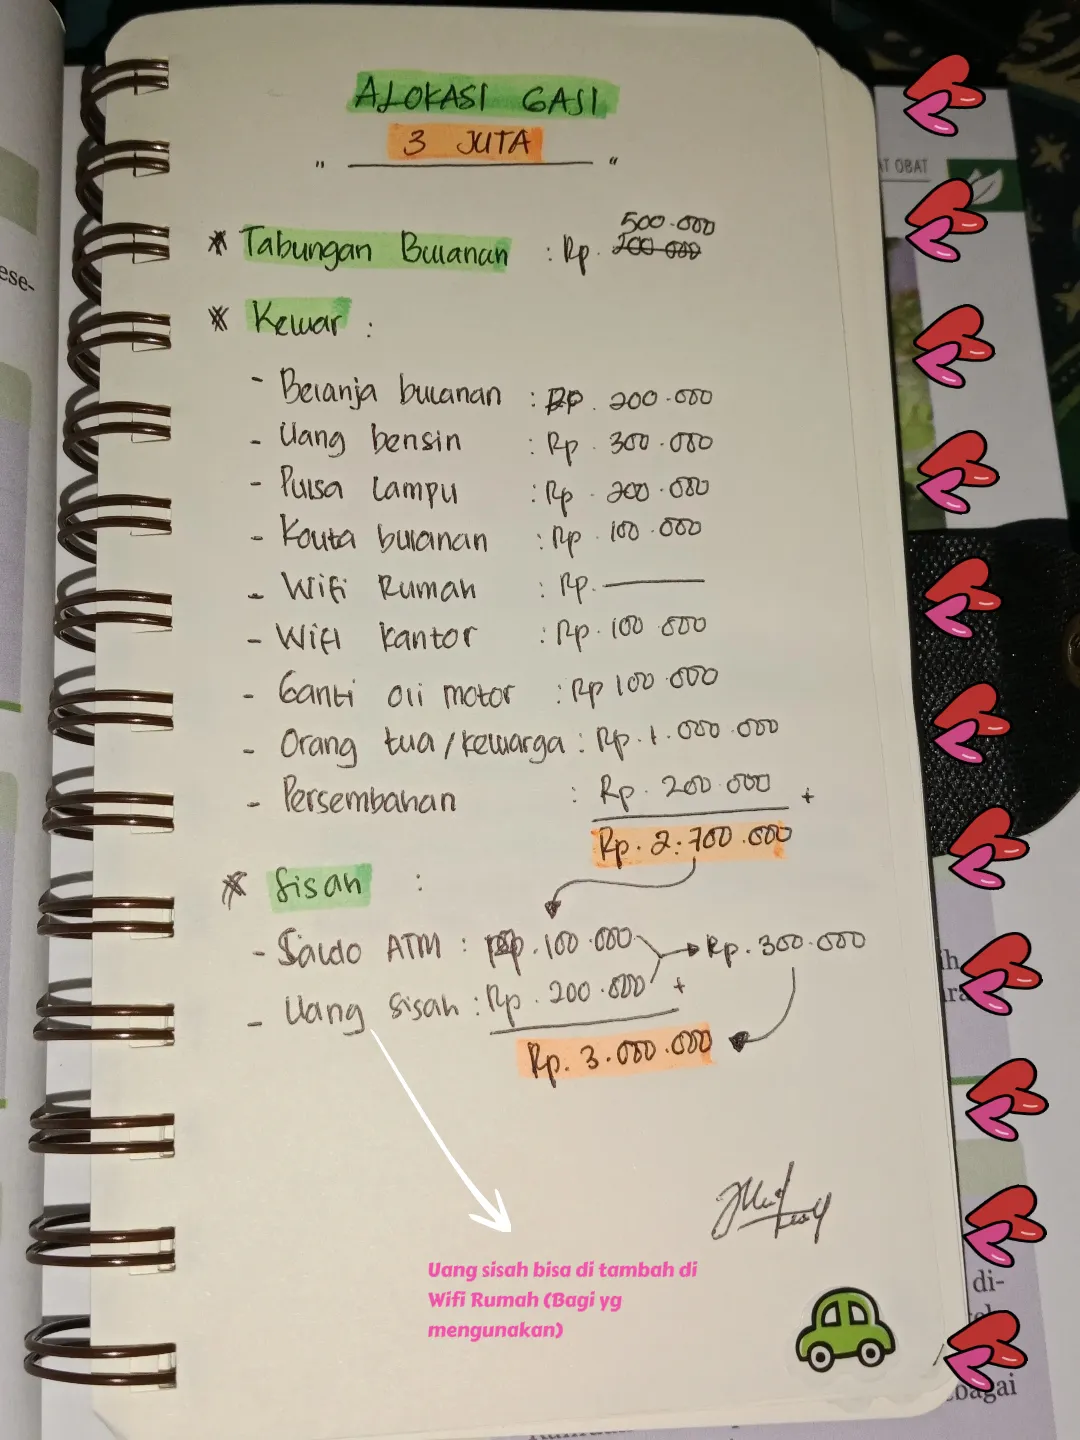 ALOKASI GAJI
3 JUTA
" "
* Tabungan Bulanan : Rp. 500.000
200.000
* Keluar :
- Belanja bulanan : Rp. 200.000
- Uang bensin : Rp. 300.000
- Pulsa lampu : Rp. 200.000
- Kouta bulanan : Rp. 100.000
- Wifi Rumah : Rp. ———
- Wifi kantor : Rp. 100.000
- Ganti oli motor : Rp 100.000
- Orang tua/keluarga : Rp. 1.000.000
- Persembahan : Rp. 200.000 +
Rp. 2.700.000
* Sisah :
- Saldo ATM : Rp. 100.000 Rp. 300.000
- Uang sisah : Rp. 200.000 +
Rp. 3.000.000
Uang sisah bisa di tambah di
Wifi Rumah (Bagi yg
mengunakan)
AT OBAT
ese-
di-
bagai